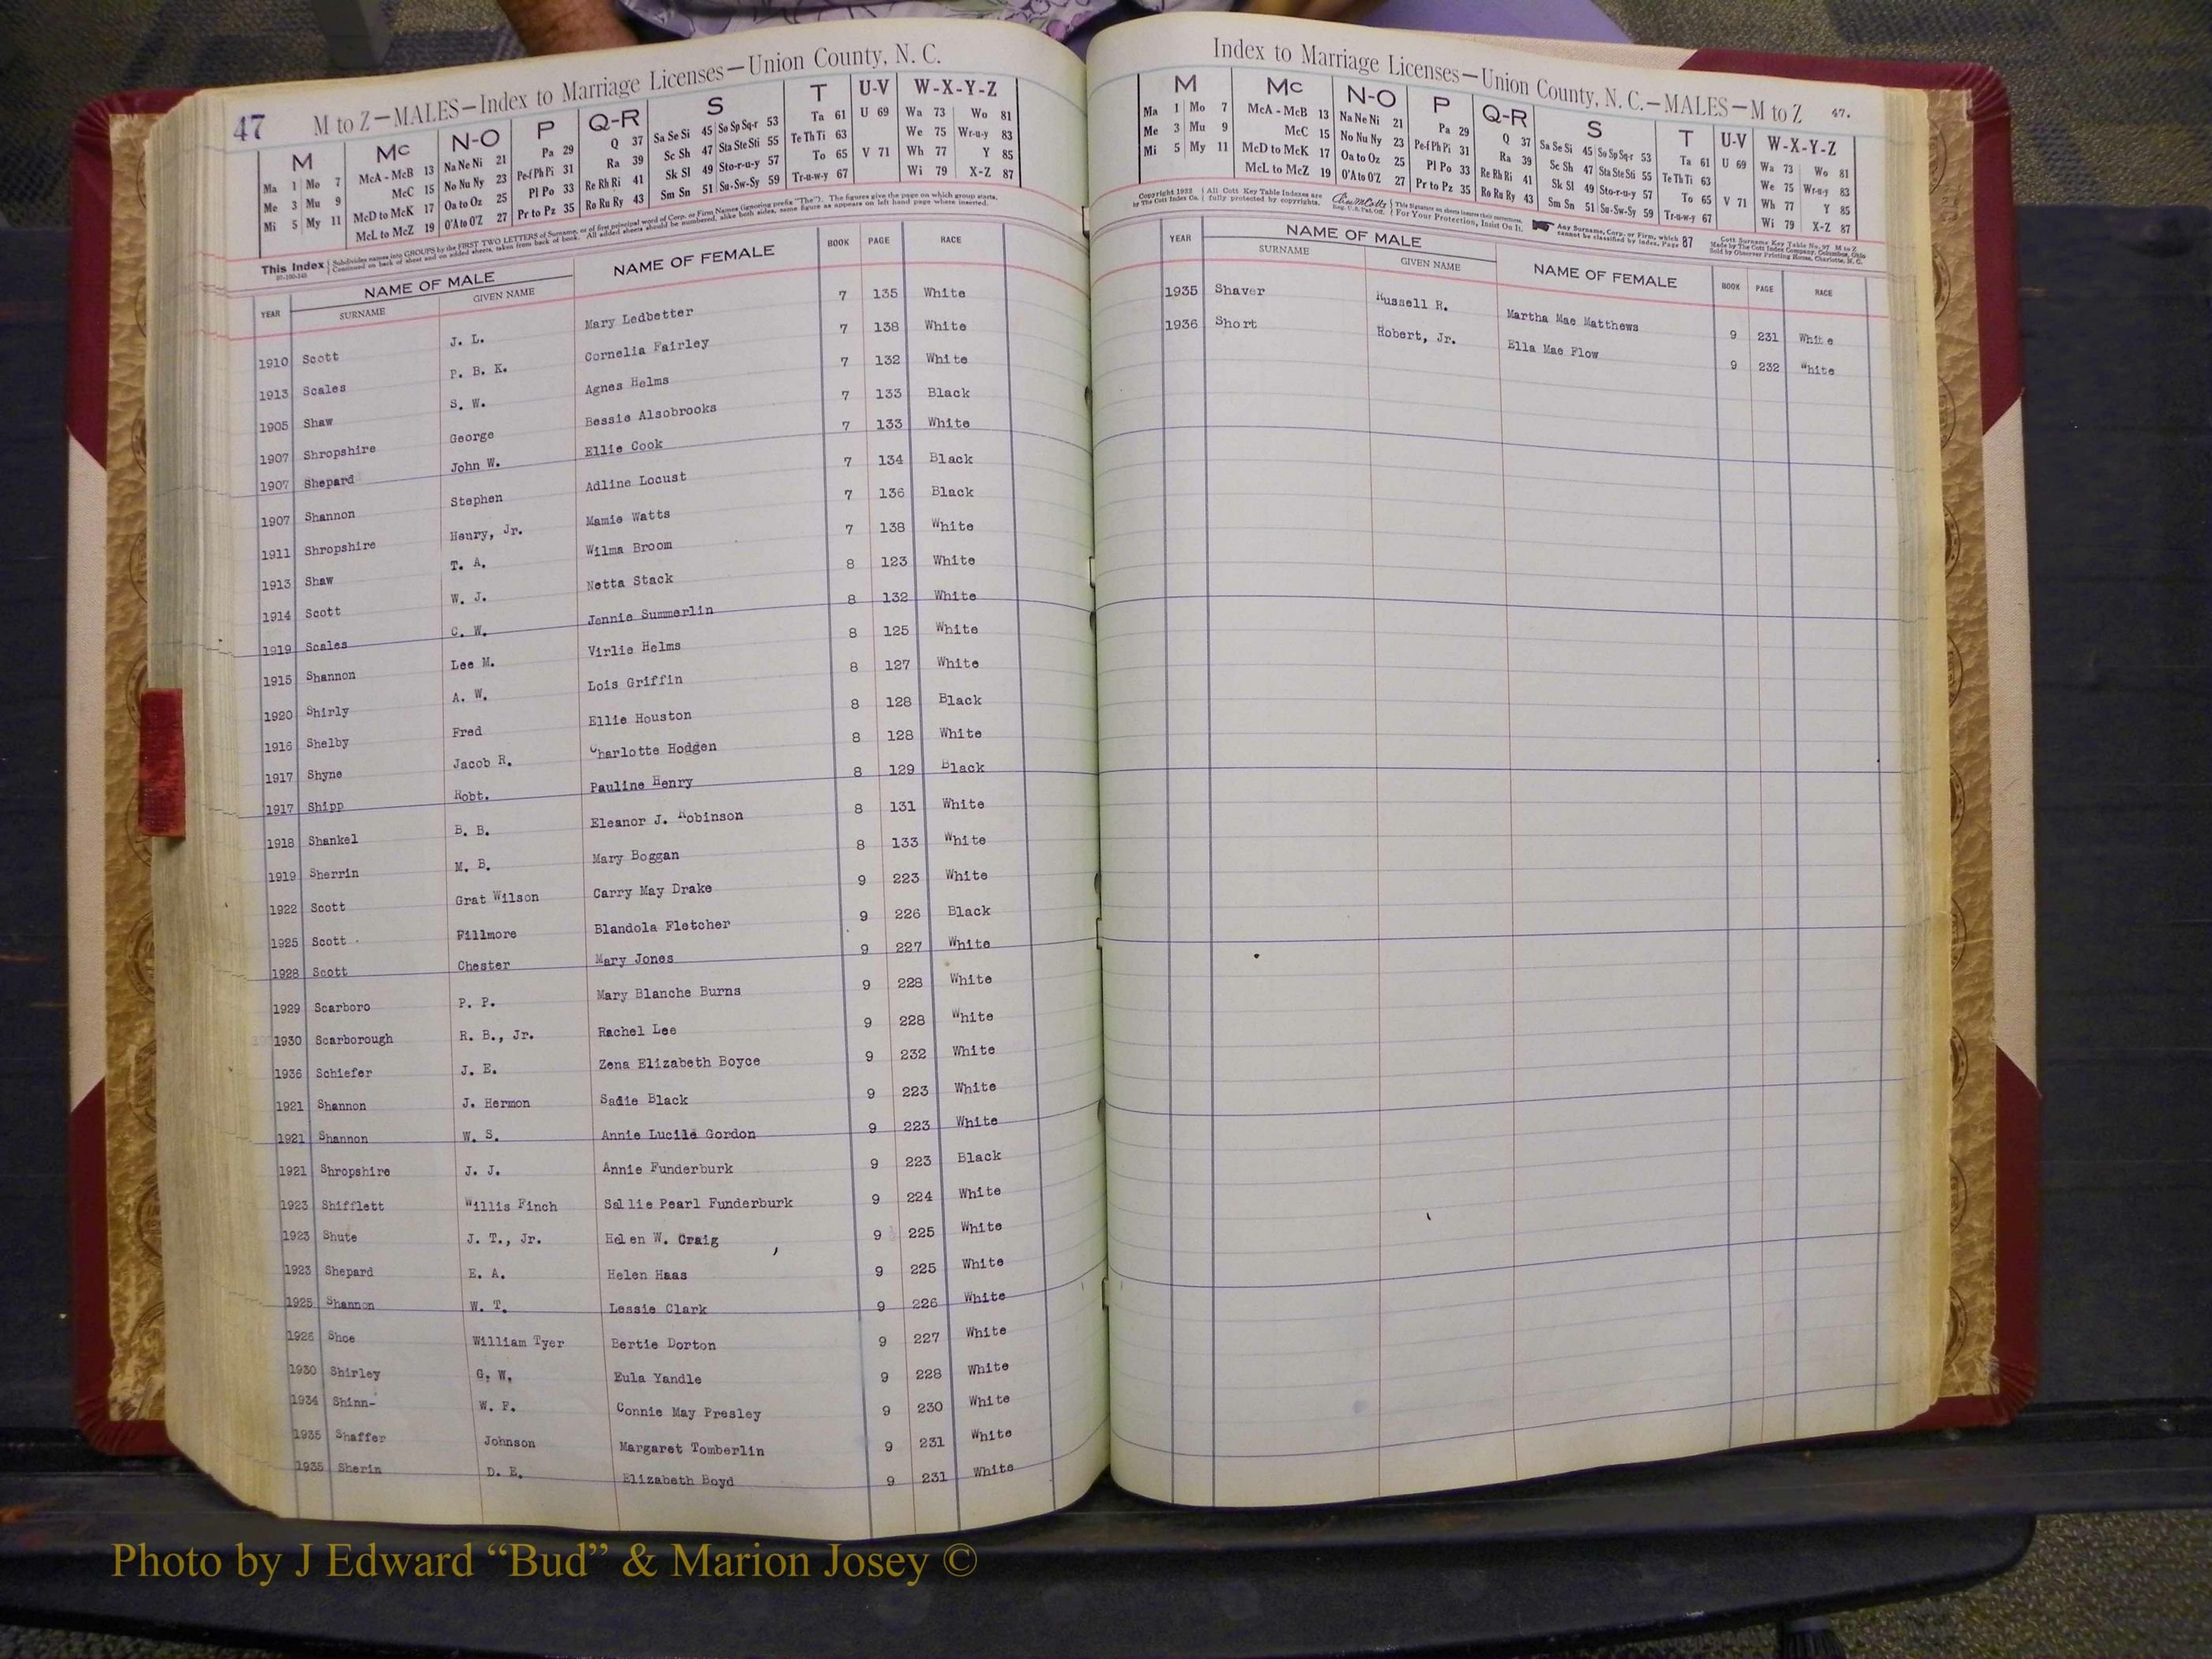 47
M to Z—MALES—Index to Marriage Licenses—Union County, N. C.
M Mc N-O P Q-R S T U-V W-X-Y-Z
Ma 1 Mo 7 McA - McB 13 Na Ne Ni 21 Pa 29 Q 37 Sa Se Si 45 So Sp Sq-r 53 Ta 61 U 69 Wa 73 Wo 81
Me 3 Mu 9 McC 15 No Nu Ny 23 Pe-f Ph Pi 31 Ra 39 Sc Sh 47 Sta Ste Sti 55 Te Th Ti 63 We 75 Wr-u-y 83
Mi 5 My 11 McD to McK 17 Oa to Oz 25 Pl Po 33 Re Rh Ri 41 Sk Sl 49 Sto-r-u-y 57 To 65 V 71 Wh 77 Y 85
McL to McZ 19 O'A to O'Z 27 Pr to Pz 35 Ro Ru Ry 43 Sm Sn 51 Su-Sw-Sy 59 Tr-u-w-y 67 Wi 79 X-Z 87
This Index Subdivides names into GROUPS by the FIRST TWO LETTERS of Surname, or of first principal word of Corp. or Firm Names (ignoring prefix "The"). The figures give the page on which group starts.
Continued on back of sheet and on added sheets, taken from back of book. All added sheets should be numbered, alike both sides, same figure as appears on left hand page where inserted.
YEAR NAME OF MALE SURNAME GIVEN NAME NAME OF FEMALE BOOK PAGE RACE
1910 Scott J. L. Mary Ledbetter 7 135 White
1913 Scales P. B. K. Cornelia Fairley 7 138 White
1905 Shaw S. W. Agnes Helms 7 132 White
1907 Shropshire George Bessie Alsobrooks 7 133 Black
1907 Shepard John W. Ellie Cook 7 133 White
1907 Shannon Stephen Adline Locust 7 134 Black
1911 Shropshire Henry, Jr. Mamie Watts 7 136 Black
1913 Shaw T. A. Wilma Broom 7 138 White
1914 Scott W. J. Netta Stack 8 123 White
1919 Scales C. W. Jennie Summerlin 8 132 White
1915 Shannon Lee M. Virlie Helms 8 125 White
1920 Shirly A. W. Lois Griffin 8 127 White
1916 Shelby Fred Ellie Houston 8 128 Black
1917 Shyne Jacob R. Charlotte Hodgen 8 128 White
1917 Shipp Robt. Pauline Henry 8 129 Black
1918 Shankel B. B. Eleanor J. Robinson 8 131 White
1919 Sherrin M. B. Mary Boggan 8 133 White
1922 Scott Grat Wilson Carry May Drake 9 223 White
1925 Scott Fillmore Blandola Fletcher 9 226 Black
1928 Scott Chester Mary Jones 9 227 White
1929 Scarboro P. P. Mary Blanche Burns 9 228 White
1930 Scarborough R. B., Jr. Rachel Lee 9 228 White
1936 Schiefer J. E. Zena Elizabeth Boyce 9 232 White
1921 Shannon J. Hermon Sadie Black 9 223 White
1921 Shannon W. S. Annie Lucile Gordon 9 223 White
1921 Shropshire J. J. Annie Funderburk 9 223 Black
1923 Shifflett Willis Finch Sallie Pearl Funderburk 9 224 White
1923 Shute J. T., Jr. Helen W. Craig 9 225 White
1923 Shepard E. A. Helen Haas 9 225 White
1925 Shannon W. T. Lessie Clark 9 226 White
1926 Shoe William Tyer Bertie Dorton 9 227 White
1930 Shirley G. W. Eula Yandle 9 228 White
1934 Shinn- W. F. Connie May Presley 9 230 White
1935 Shaffer Johnson Margaret Tomberlin 9 231 White
1935 Sherin D. E. Elizabeth Boyd 9 231 White
Index to Marriage Licenses—Union County, N. C.—MALES—M to Z 47.
M Mc N-O P Q-R S T U-V W-X-Y-Z
Ma 1 Mo 7 McA - McB 13 Na Ne Ni 21 Pa 29 Q 37 Sa Se Si 45 So Sp Sq-r 53 Ta 61 U 69 Wa 73 Wo 81
Me 3 Mu 9 McC 15 No Nu Ny 23 Pe-f Ph Pi 31 Ra 39 Sc Sh 47 Sta Ste Sti 55 Te Th Ti 63 We 75 Wr-u-y 83
Mi 5 My 11 McD to McK 17 Oa to Oz 25 Pl Po 33 Re Rh Ri 41 Sk Sl 49 Sto-r-u-y 57 To 65 V 71 Wh 77 Y 85
McL to McZ 19 O'A to O'Z 27 Pr to Pz 35 Ro Ru Ry 43 Sm Sn 51 Su-Sw-Sy 59 Tr-u-w-y 67 Wi 79 X-Z 87
Copyright 1922 All Cott Key Table Indexes are
by The Cott Index Co. fully protected by copyrights.
This signature on sheets insures their correctness.
Reg. U.S. Pat. Off. For Your Protection, Insist On It.
Any Surname, Corp. or Firm, which
cannot be classified by index, Page 87
Cott Surname Key Table No. 97 M to Z
Made by The Cott Index Company, Columbus, Ohio
Sold by Observer Printing House, Charlotte, N. C.
YEAR NAME OF MALE SURNAME GIVEN NAME NAME OF FEMALE BOOK PAGE RACE
1935 Shaver Russell R. Martha Mae Matthews 9 231 White
1936 Short Robert, Jr. Ella Mae Flow 9 232 White
Photo by J Edward “Bud” & Marion Josey ©